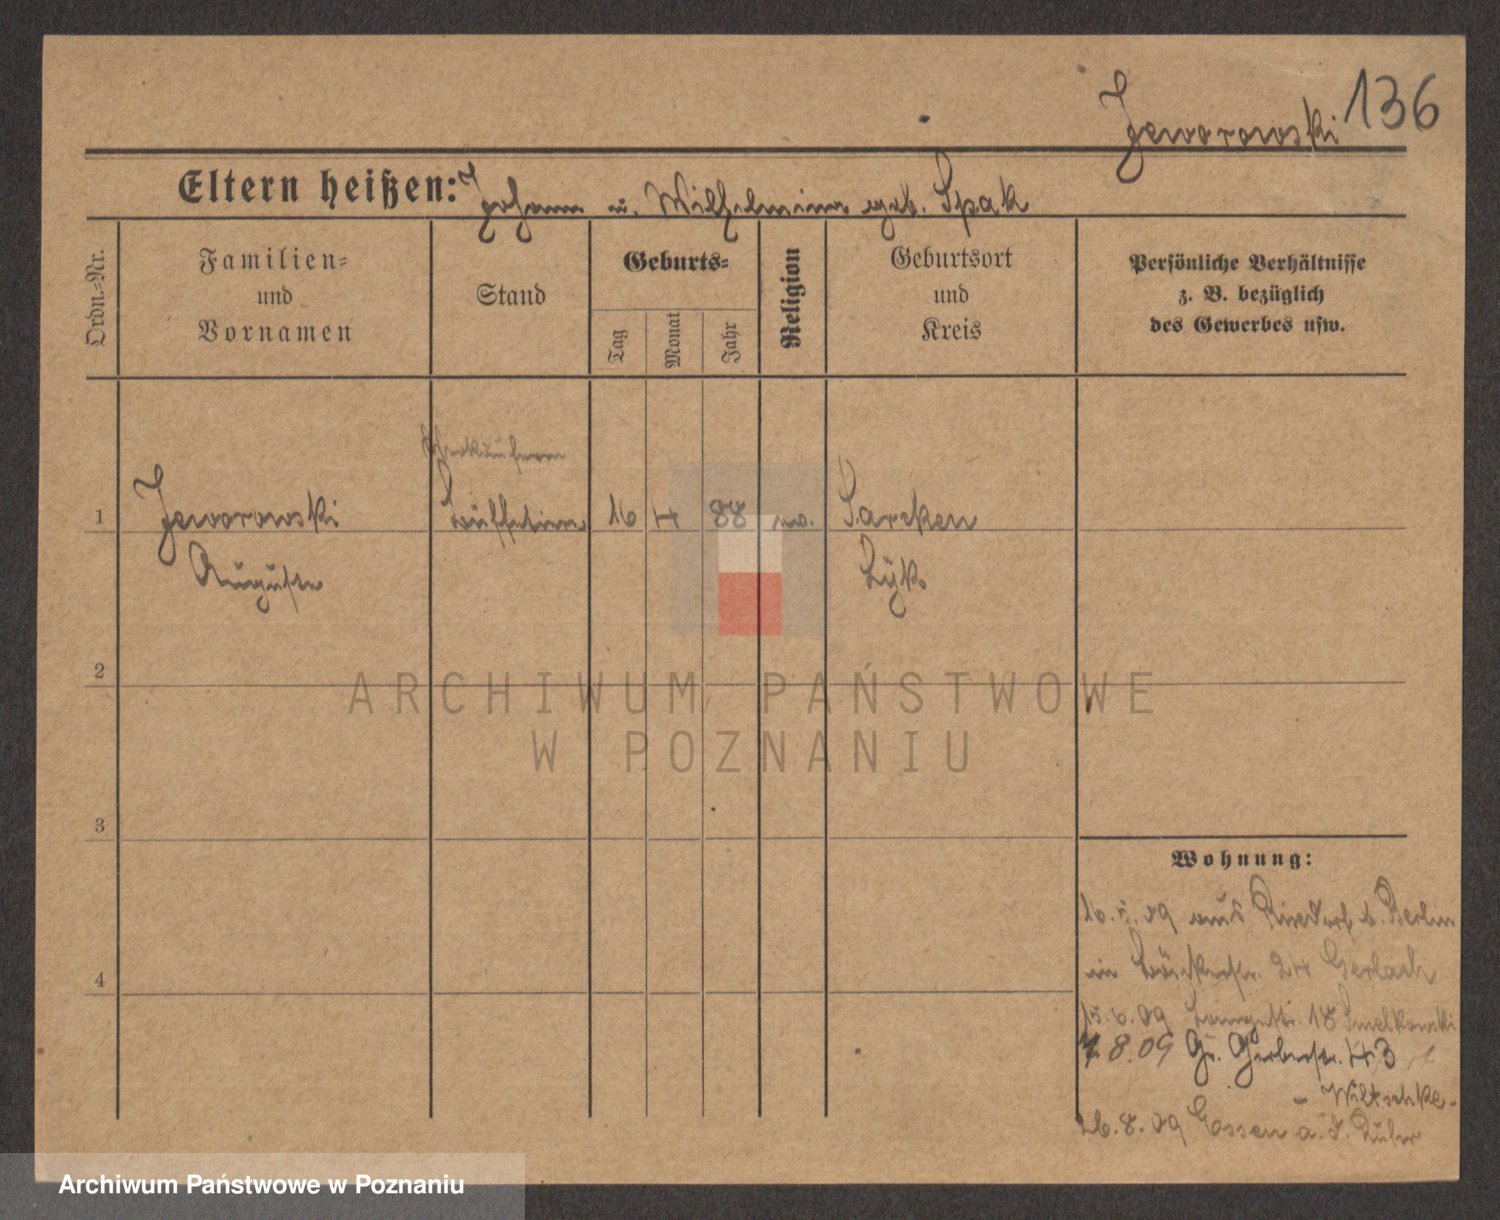 136
Jeworowski
Eltern heißen: Johann u. Wilhelmine geb. Spak
Ordn.-Nr.
Familien-
und
Vornamen
Stand
Geburts-
Tag
Monat
Jahr
Religion
Geburtsort
und
Kreis
Persönliche Verhältnisse
z. B. bezüglich
des Gewerbes usw.
1
Jeworowski
Auguste
Verkäuferin
Büffetiere
16
4
88
ev.
Sareken
Lyk
2
3
4
ARCHIWUM PAŃSTWOWE
W POZNANIU
Wohnung:
16.5.09 aus Rixdorf b. Berlin
in Bäckerstr. 24 Gerlach
15.6.09 Langestr. 18 Smelkowski
7.8.09 Gr. Gerberstr. 43
- Wiltschke -
26.8.09 Essen a. d. Ruhr
Archiwum Państwowe w Poznaniu